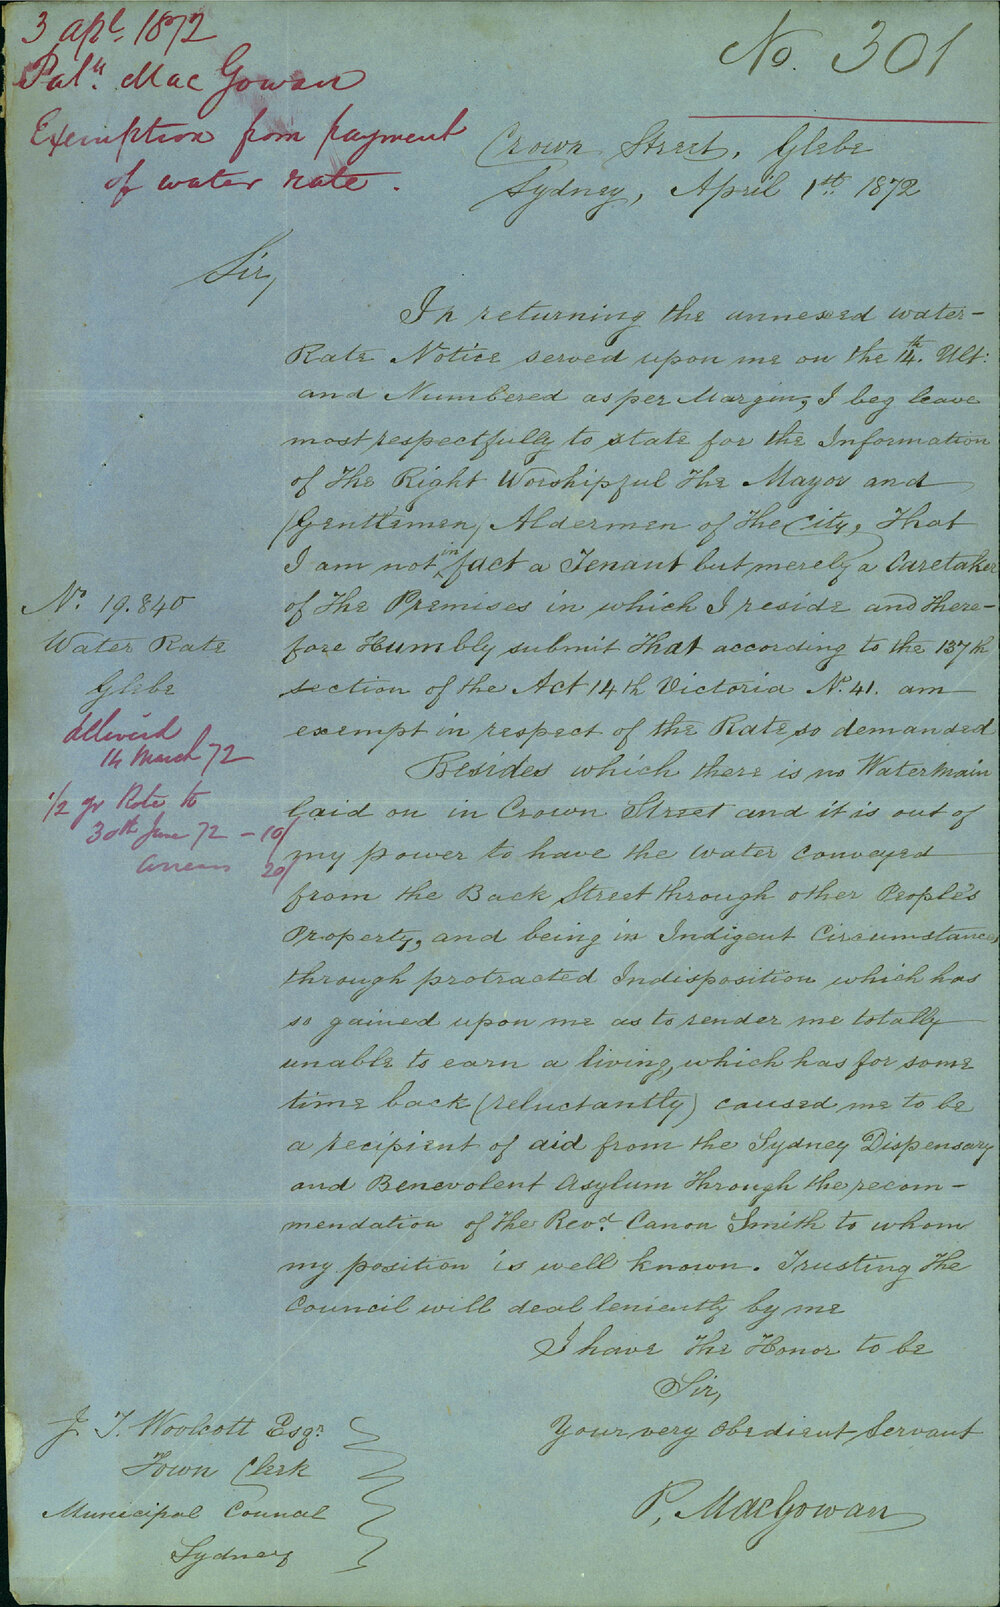 3 apl. 1872
Patk. Mac Gowan
Exemption from payment
of water rate.
No. 301
Crown Street, Glebe
Sydney, April 1st. 1872
Sir,
In returning the annexed water-
Rate Notice served upon me on the 14th. Ult:
and Numbered as per Margin, I beg leave
most respectfully to state for the Information
of The Right Worshipful The Mayor and
(Gentlemen) Aldermen of The City, That
I am not in fact a Tenant but merely a Caretaker
of The Premises in which I reside and there-
fore Humbly submit That according to the 137th
section of the Act 14th Victoria No. 41. am
exempt in respect of the Rate so demanded
Besides which there is no Water Main
laid on in Crown Street and it is out of
my power to have the water conveyed
from the Back Street through other People's
Property, and being in Indigent Circumstances
through protracted Indisposition which has
so gained upon me as to render me totally
unable to earn a living, which has for some
time back (reluctantly) caused me to be
a recipient of aid from the Sydney Dispensary
and Benevolent Asylum through the recom-
mendation of The Revd. Canon Smith to whom
my position is well known. Trusting The
Council will deal leniently by me
I have The Honor to be
Sir,
Your very Obedient Servant
P, MacGowan
No. 19.840
Water Rate
Glebe
delivered
14 March 72
1/2 yr Rate to
30th June 72 - 10/
arrears 20/
J. T. Woolcott Esqr.
Town Clerk
Municipal Council
Sydney